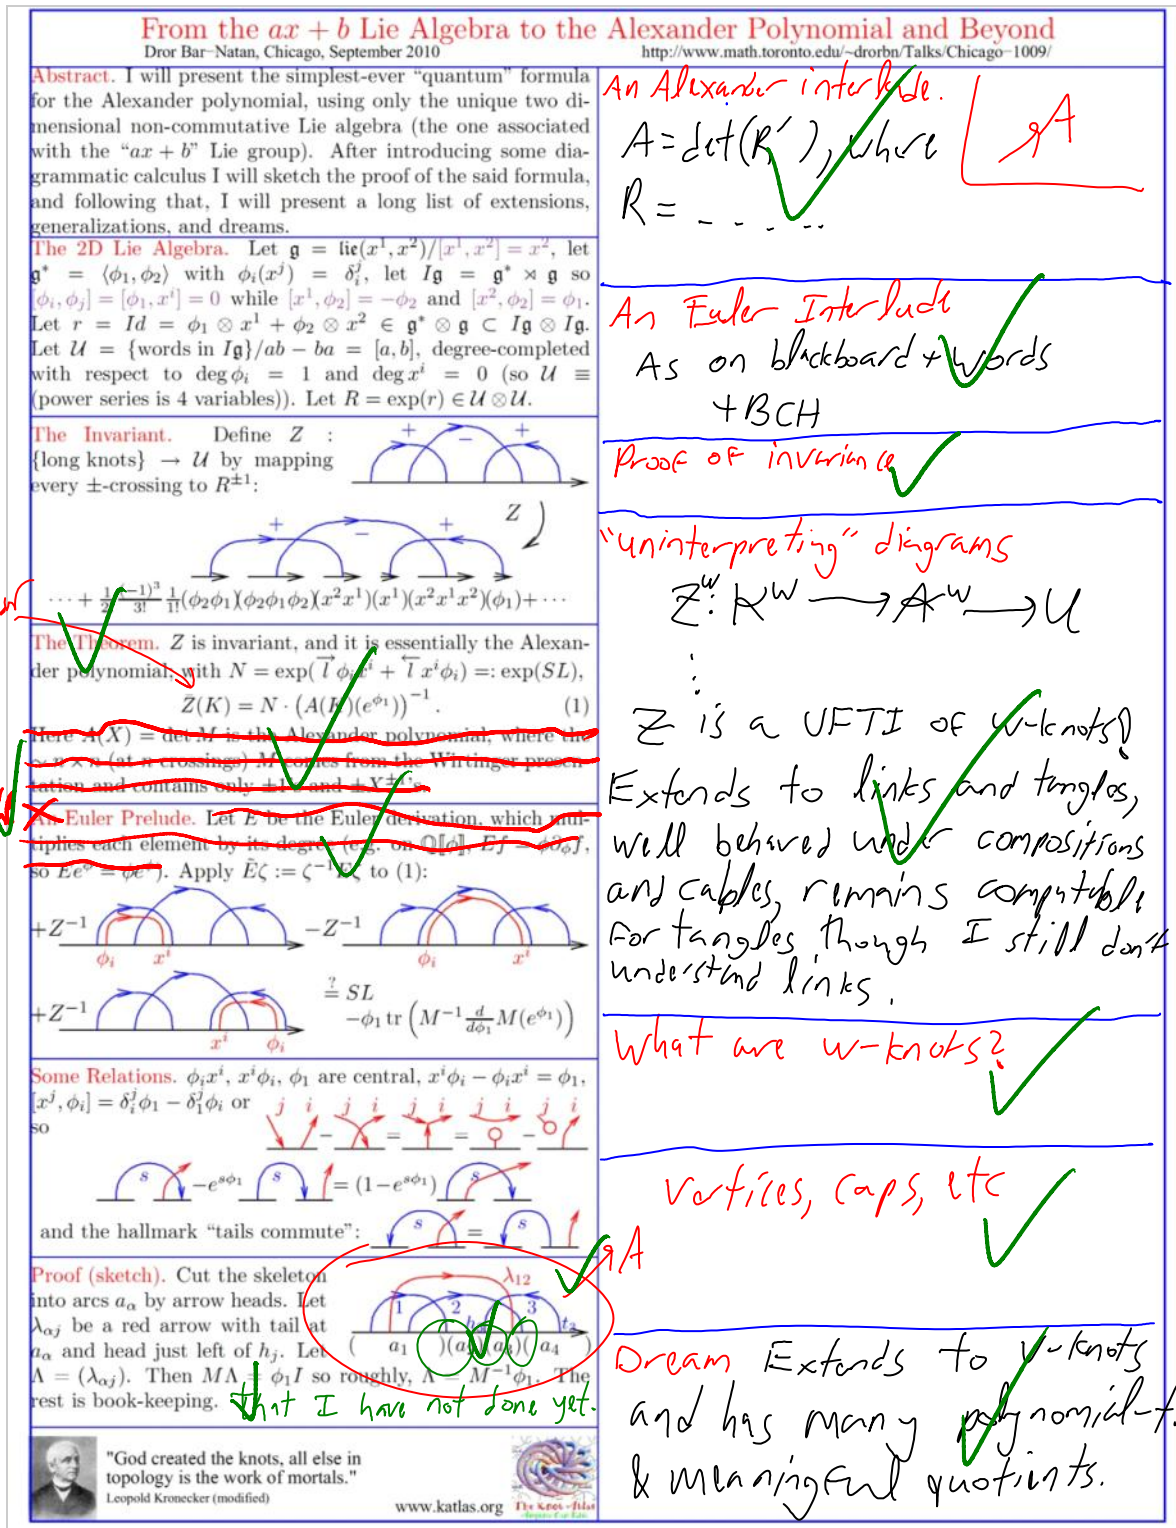 From the ax + b Lie Algebra to the Alexander Polynomial and Beyond
Dror Bar−Natan, Chicago, September 2010
http://www.math.toronto.edu/~drorbn/Talks/Chicago−1009/
Abstract. I will present the simplest-ever “quantum” formula
for the Alexander polynomial, using only the unique two di-
mensional non-commutative Lie algebra (the one associated
with the “ax + b” Lie group). After introducing some dia-
grammatic calculus I will sketch the proof of the said formula,
and following that, I will present a long list of extensions,
generalizations, and dreams.
The 2D Lie Algebra. Let 𝔤 = lie(x¹, x²)/[x¹, x²] = x², let
𝔤* = ⟨ϕ₁, ϕ₂⟩ with ϕᵢ(xʲ) = δᵢʲ, let I𝔤 = 𝔤* ⋊ 𝔤 so
[ϕᵢ, ϕⱼ] = [ϕ₁, xⁱ] = 0 while [x¹, ϕ₂] = −ϕ₂ and [x², ϕ₂] = ϕ₁.
Let r = Id = ϕ₁ ⊗ x¹ + ϕ₂ ⊗ x² ∈ 𝔤* ⊗ 𝔤 ⊂ I𝔤 ⊗ I𝔤.
Let 𝒰 = {words in I𝔤}/ab − ba = [a, b], degree-completed
with respect to deg ϕᵢ = 1 and deg xⁱ = 0 (so 𝒰 ≡
(power series is 4 variables)). Let R = exp(r) ∈ 𝒰 ⊗ 𝒰.
The Invariant. Define Z :
{long knots} → 𝒰 by mapping
every ±-crossing to R^{±1}:
+ − +
Z
+ − +
··· + (−1)³/3! 1/1! (ϕ₂ϕ₁)(ϕ₂ϕ₁ϕ₂)(x²x¹)(x¹)(x²x¹x²)(ϕ₁) + ···
The Theorem. Z is invariant, and it is essentially the Alexan-
der polynomial, with N = exp(l⃗ ϕᵢxⁱ + l⃖ xⁱϕᵢ) =: exp(SL),
Z(K) = N · (A(K)(e^{ϕ₁}))⁻¹. (1)
Here A(X) = det M is the Alexander polynomial, where the
n × n (at n crossings) M comes from the Wirtinger presen-
tation and contains only ±1's and ±X^{±1}'s.
An Euler Prelude. Let E be the Euler derivation, which mul-
tiplies each element by its degree (e.g. on ℚ[[ϕ]], Ef = ϕ∂_ϕf,
so Ee^ϕ = ϕe^ϕ). Apply Ẽζ := ζ⁻¹Eζ to (1):
+Z⁻¹ ϕᵢ xⁱ −Z⁻¹ ϕᵢ xⁱ
+Z⁻¹ xⁱ ϕᵢ
≟ SL
−ϕ₁ tr (M⁻¹ d/dϕ₁ M(e^{ϕ₁}))
Some Relations. ϕᵢxⁱ, xⁱϕᵢ, ϕ₁ are central, xⁱϕᵢ − ϕᵢxⁱ = ϕ₁,
[xʲ, ϕᵢ] = δᵢʲϕ₁ − δ₁ʲϕᵢ or
j i j i j i j i j i
so − = = −
s −e^{sϕ₁} s = (1−e^{sϕ₁}) s
and the hallmark “tails commute”: s = s
Proof (sketch). Cut the skeleton
into arcs a_α by arrow heads. Let
λ_{αj} be a red arrow with tail at
a_α and head just left of hⱼ. Let
Λ = (λ_{αj}). Then MΛ = ϕ₁I so roughly, Λ = M⁻¹ϕ₁. The
rest is book-keeping. that I have not done yet.
λ₁₂
1 2 3
( a₁ )( )( )( a₄ )
"God created the knots, all else in
topology is the work of mortals."
Leopold Kronecker (modified)
www.katlas.org
The Knot Atlas
An Alexander interlude.
A = det(R′), where
R = - - . ..
A
An Euler Interlude
As on blackboard + words
+ BCH
Proof of invariance
"uninterpreting" diagrams
Z^w: K^w → A^w → U
⋮
Z is a UFTI of w-knots!
Extends to links and tangles,
well behaved under compositions
and cables, remains computable
for tangles though I still don't
understand links.
What are w-knots?
Vertices, caps, etc
A
Dream Extends to v-knots
and has many polynomial-t.
& meaningful quotients.